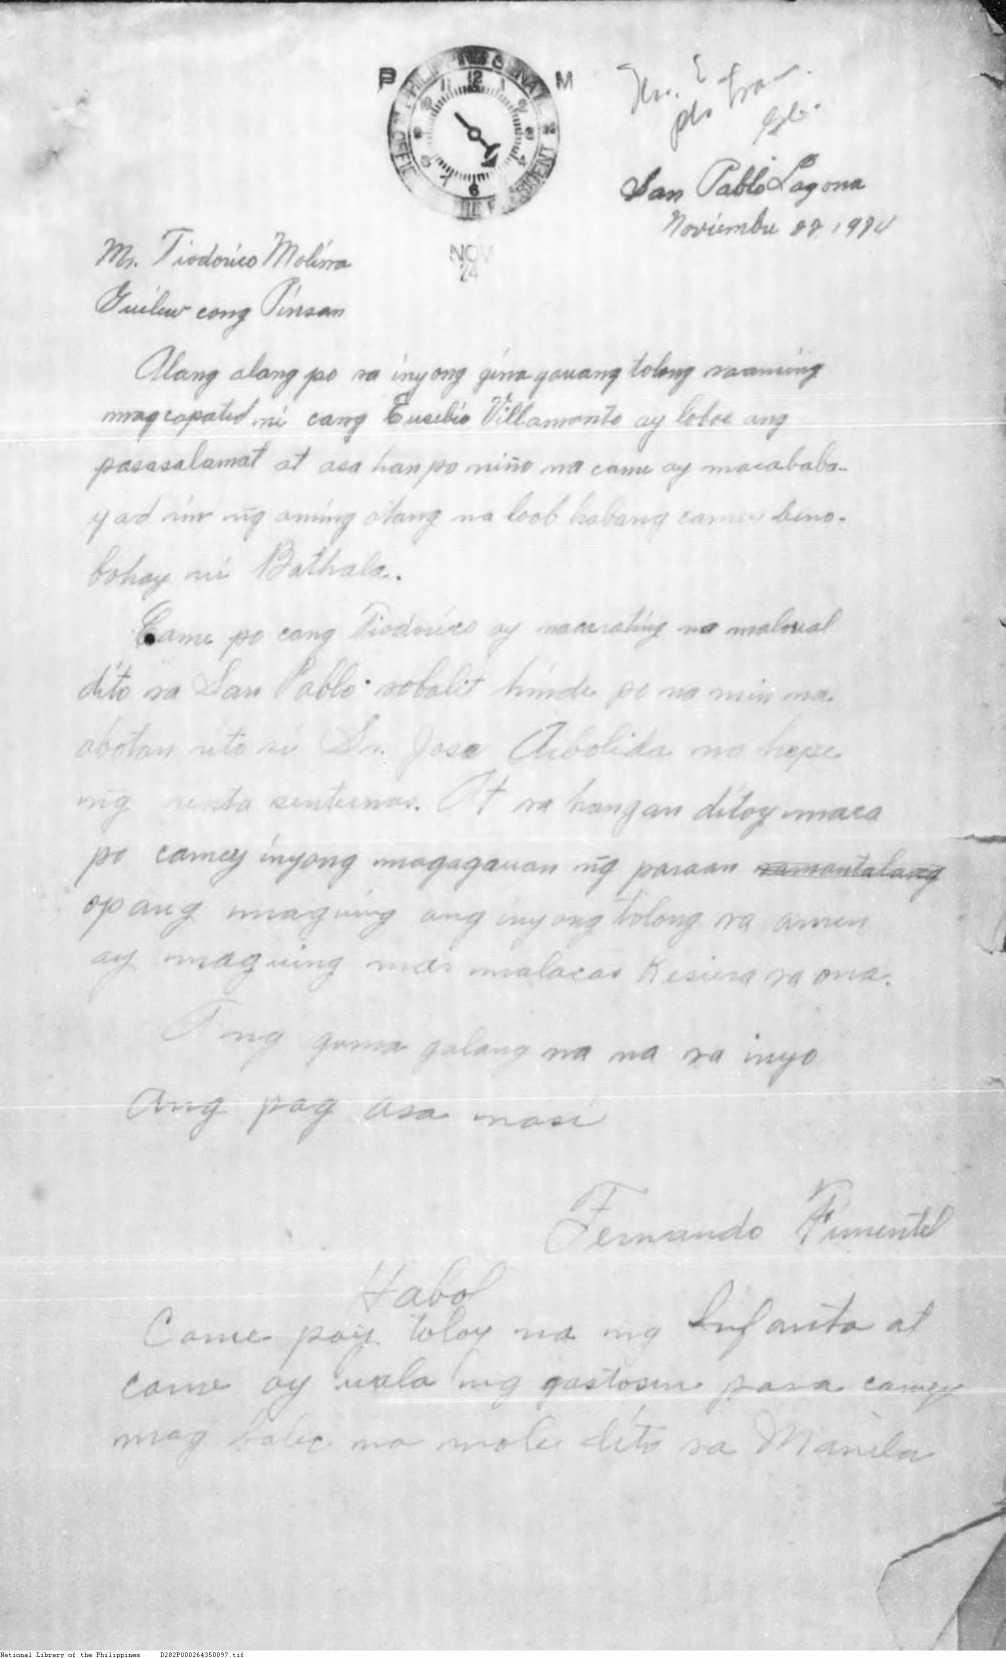 P M
PHILIPPINE SENATE
OFFICE OF THE PRESIDENT
NOV
24
San Pablo Laguna
Noviembre 22, 1924
Mr. Tiodorico Molina
Guiliw cong Pinsan
Alang alang po sa inyong gina gauang tolong saaming
magcapatid ni cang Eusebio Villamonte ay lobos ang
pasasalamat at asa han po niño na came ay macababa-
yad rin ng aming otang na loob habang camey bino-
bohay ni Bathala.
Came po cang Tiodorico ay nacarating na maloual
dito sa San Pablo sobalit hinde po na min na
abotan rito si Sr. Jose Arbolida na hepe
ng renta enternas. At sa hangan ditoy maca
po camey inyong magagauan ng paraan samantalang
opang maguing ang inyong tolong sa amen
ay maguing mas malacas kesiera sa ona.
Ang guma galang na sa inyo
Ang pag asa mosi
Fernando Pimentel
Habol
Came poy toloy na ng Infanta at
came ay uala ng gastosin para camey
mag balic na mole dito sa Manila
National Library of the Philippines D282P000264350097.tif